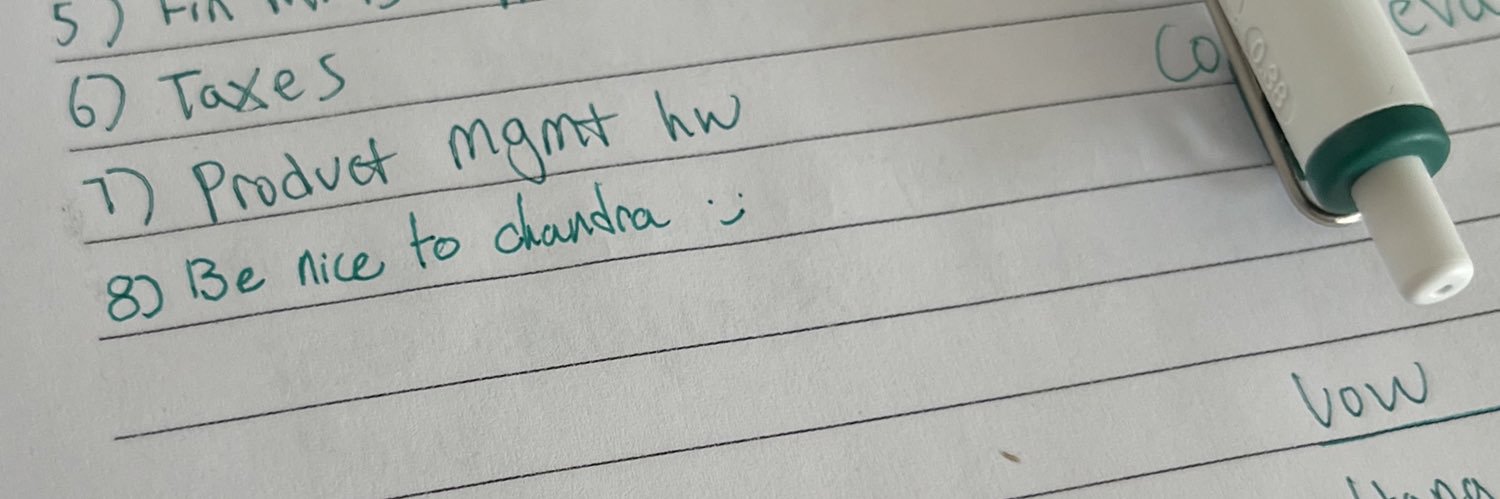 5)
6) Taxes
7) Product mgmt hw
8) Be nice to chandra :)
0.38
vow